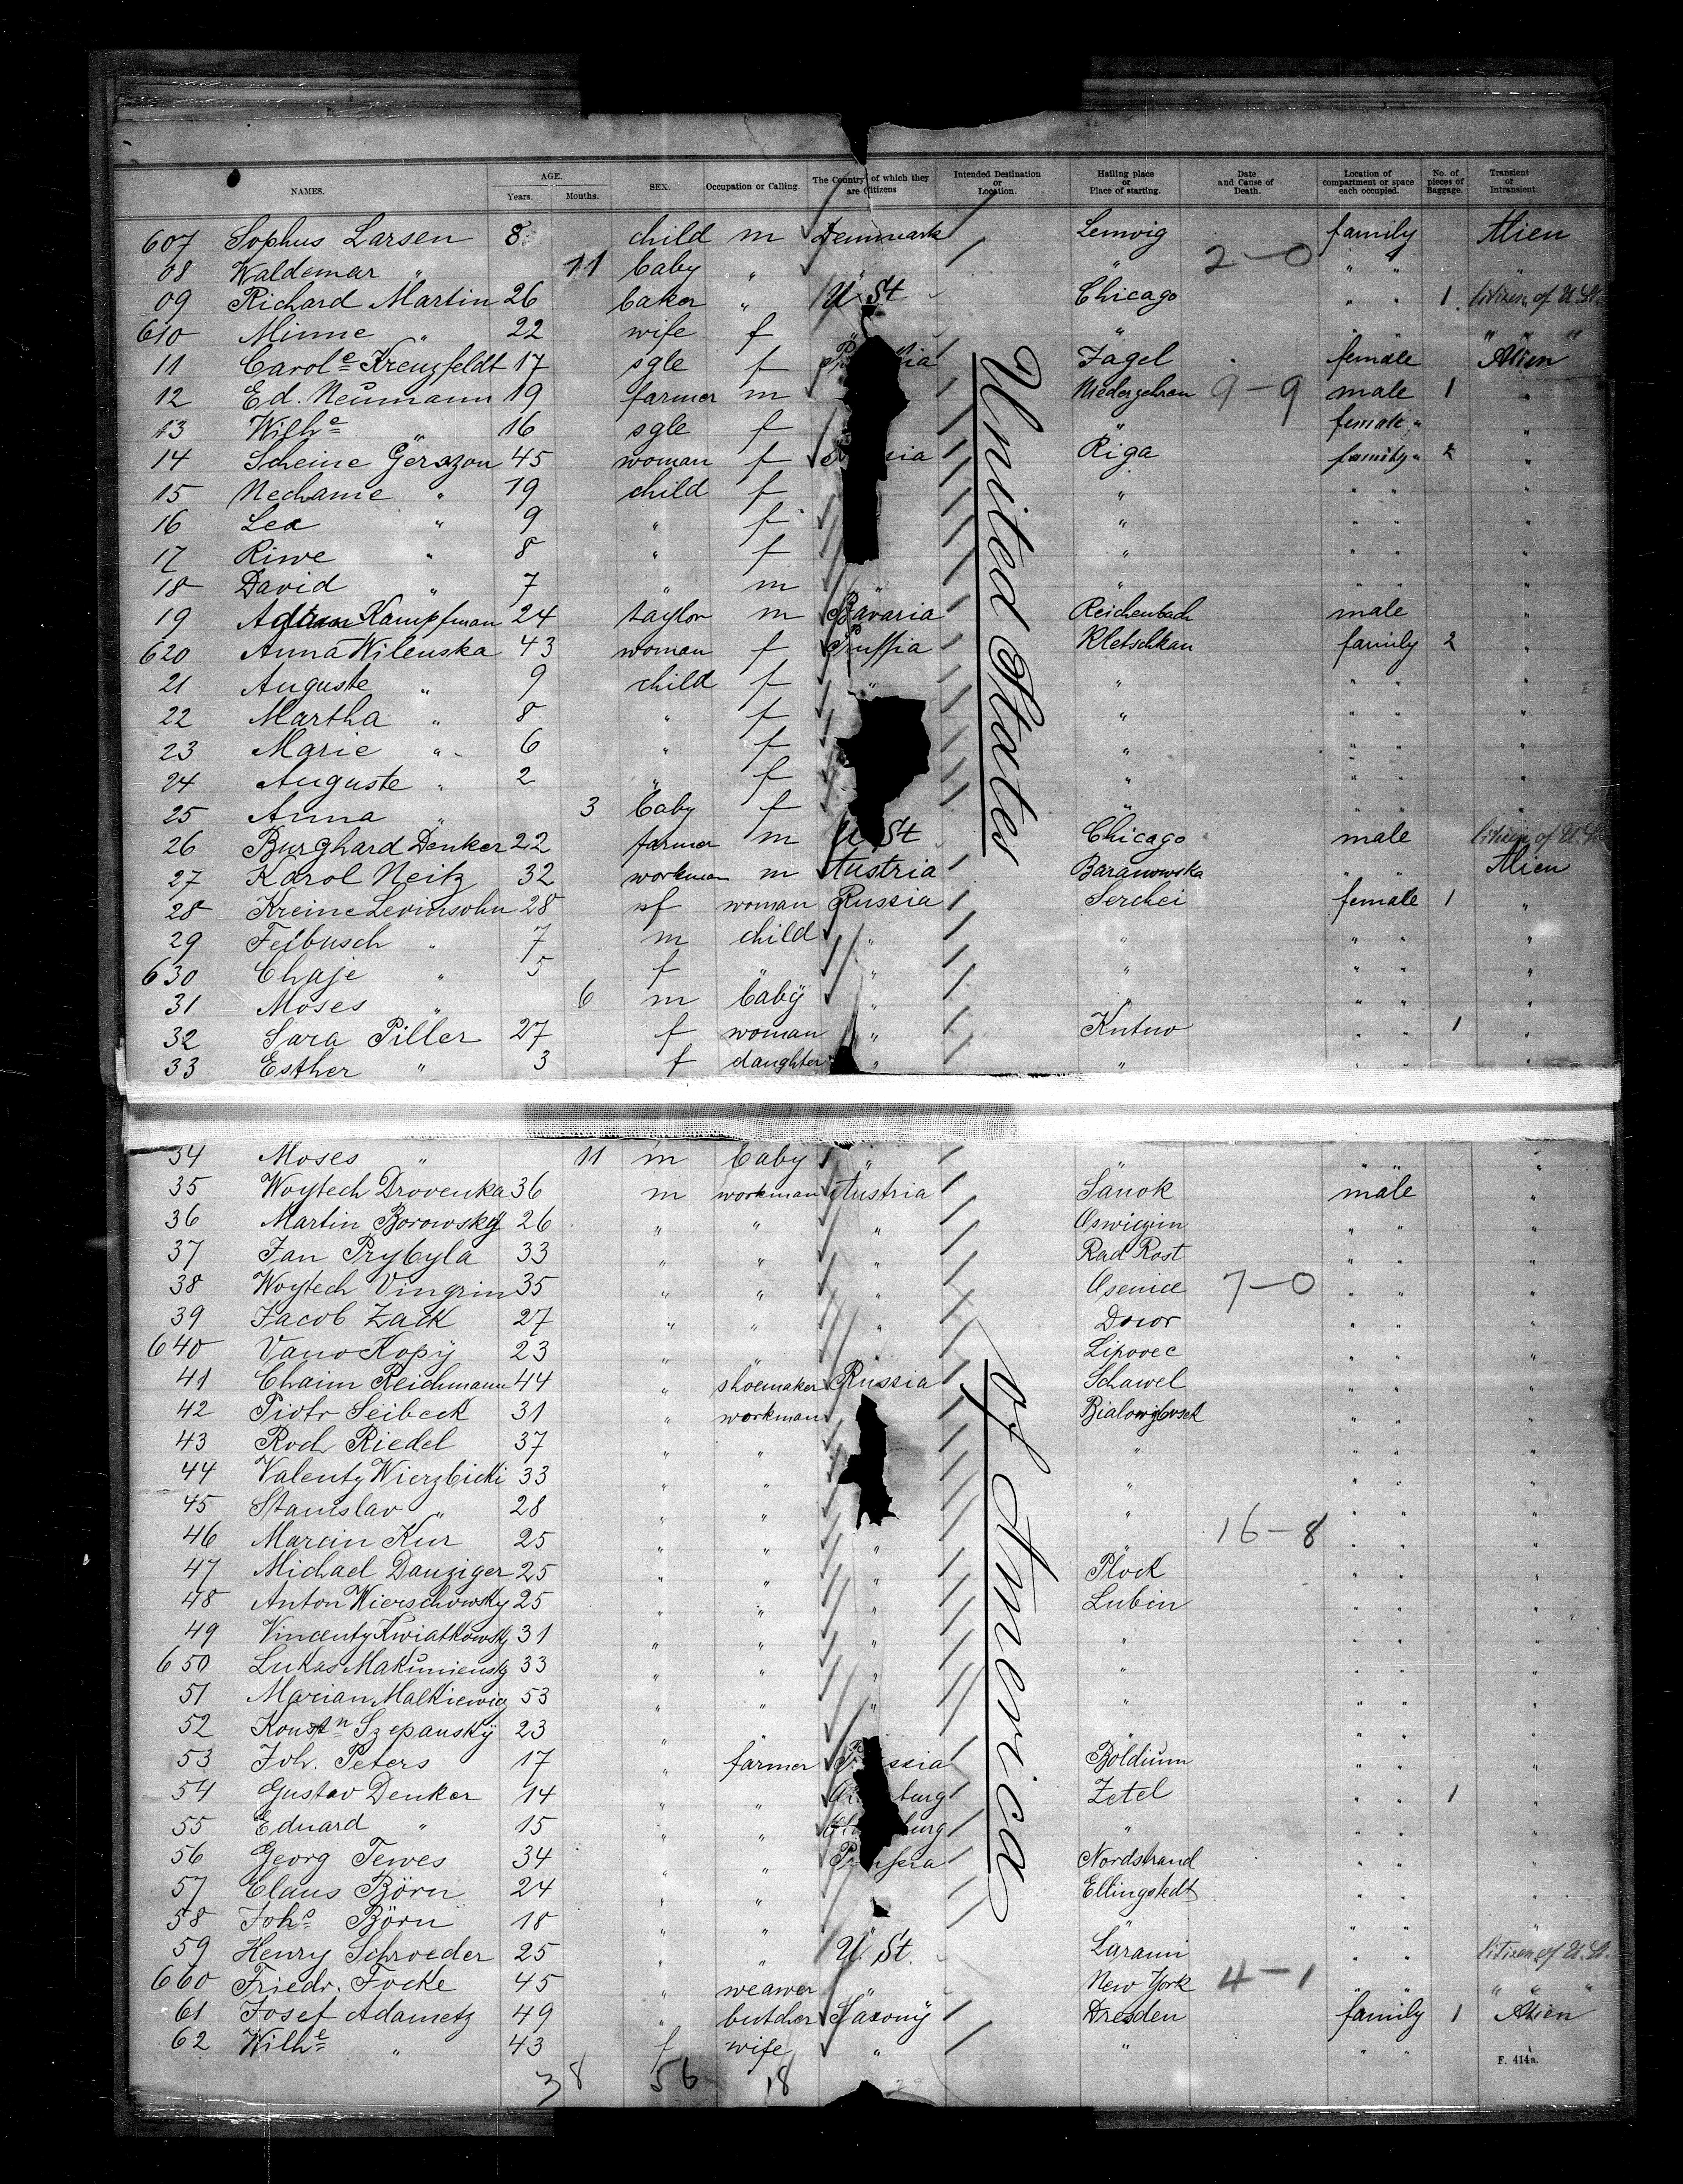 NAMES. AGE. Years. Months. SEX. Occupation or Calling. The Country of which they are Citizens Intended Destination or Location. Hailing place or Place of starting. Date and Cause of Death. Location of compartment or space each occupied. No. of pieces of Baggage. Transient or Intransient.
607 Sophus Larsen 8 child m Denmark Lemvig family Alien
08 Waldemar " 11 baby " " " 2-0 " " "
09 Richard Martin 26 baker " U St Chicago " " 1 citizen of U.St.
610 Minne " 22 wife f " " " " " " "
11 Carole Kreuzfeldt 17 sgle f Jagel female Alien
12 Ed. Neumann 19 farmer m Niederzehren 9-9 male 1 "
13 Wilhe " 16 sgle f " female " "
14 Scheine Gerszon 45 woman f Riga family " 2 "
15 Nechame " 19 child f " " " "
16 Lea " 9 " f " " " "
17 Riwe " 8 " f " " " "
18 David " 7 " m " " " " "
19 Adam Kampfman 24 taylor m Bavaria Reichenbach male "
620 Anna Wilenska 43 woman f Prussia Kletschkau family 2 "
21 Auguste " 9 child f " " " " "
22 Martha " 8 " f " " " "
23 Marie " 6 " f " " " "
24 Auguste " 2 " f " " " "
25 Anna " 3 baby f " " " "
26 Burghard Denker 22 farmer m U St Chicago male citizen of U.St.
27 Karol Neitz 32 workman m Austria Baranowska " " Alien
28 Kreine Levinsohn 28 f woman Russia Serchei female 1 "
29 Feibusch " 7 m child " " " " "
630 Chaje " 5 f " " " " " "
31 Moses " 6 m baby " " " " "
32 Sara Piller 27 f woman " Kutno " " 1 "
33 Esther " 3 f daughter " " " " "
34 Moses " 11 m baby " " " " "
35 Woytech Drovenka 36 m workman Austria Sanok male "
36 Martin Borowsky 26 " " " Oswiczim " " "
37 Jan Prybyla 33 " " " Rad Rost " " "
38 Woytech Vingrin 35 " " " Osenice 7-0 " " "
39 Jacob Zack 27 " " " Dwor " " "
640 Vano Kopy 23 " " " Lipovec " " "
41 Chaim Reichmann 44 " shoemaker Russia Schawel " " "
42 Piotr Seibeck 31 " workman " "  "
43 Rod Riedel 37 " " " " " "
44 Valenty Wierzbicki 33 " " " " " "
45 Stanislav " 28 " " " " " "
46 Marcin Kur 25 " " " " 16-8 " " "
47 Michael Danziger 25 " " " Plock " " "
48 Anton Wierschowsky 25 " " " Lubin " " "
49 Vincenty Kwiatkowsky 31 " " " " " " "
650 Lukas Makumiensky 33 " " " " " " "
51 Marian Malkiewicz 53 " " " " " " "
52 Konstn Szepansky 23 " " " " " "
53 Joh. Peters 17 " farmer Boldium " " "
54 Gustav Denker 14 " " Zetel " " 1 "
55 Eduard " 15 " " " " " "
56 Georg Tewes 34 " " Prussia Nordstrand " " "
57 Claus Börn 24 " " Ellingstedt " " "
58 Johs Börn 18 " " " " " "
59 Henry Schroeder 25 " " U. St. Larami " " citizen of U.St.
660 Friedr. Focke 45 " weawer " New York 4-1 " " " " "
61 Josef Adametz 49 " butcher Saxony Dresden family 1 Alien
62 Wilhe " 43 f wife " " " "
38 56 18
United States
of America
F. 414a.